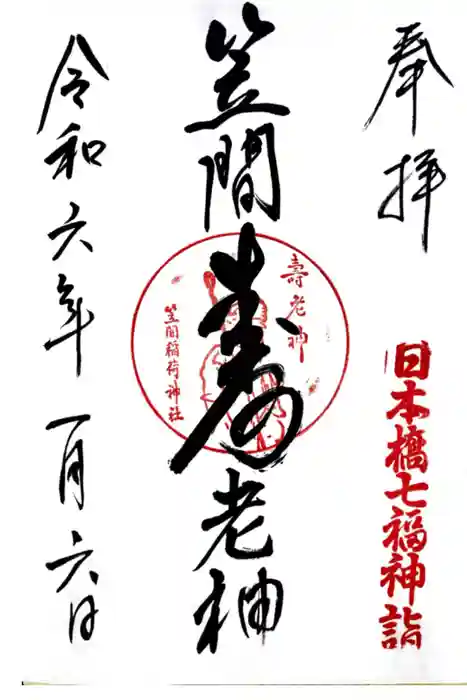 奉拝
日本橋七福神詣
笠間寿老神
壽老神
笠間稲荷神社
令和六年一月六日